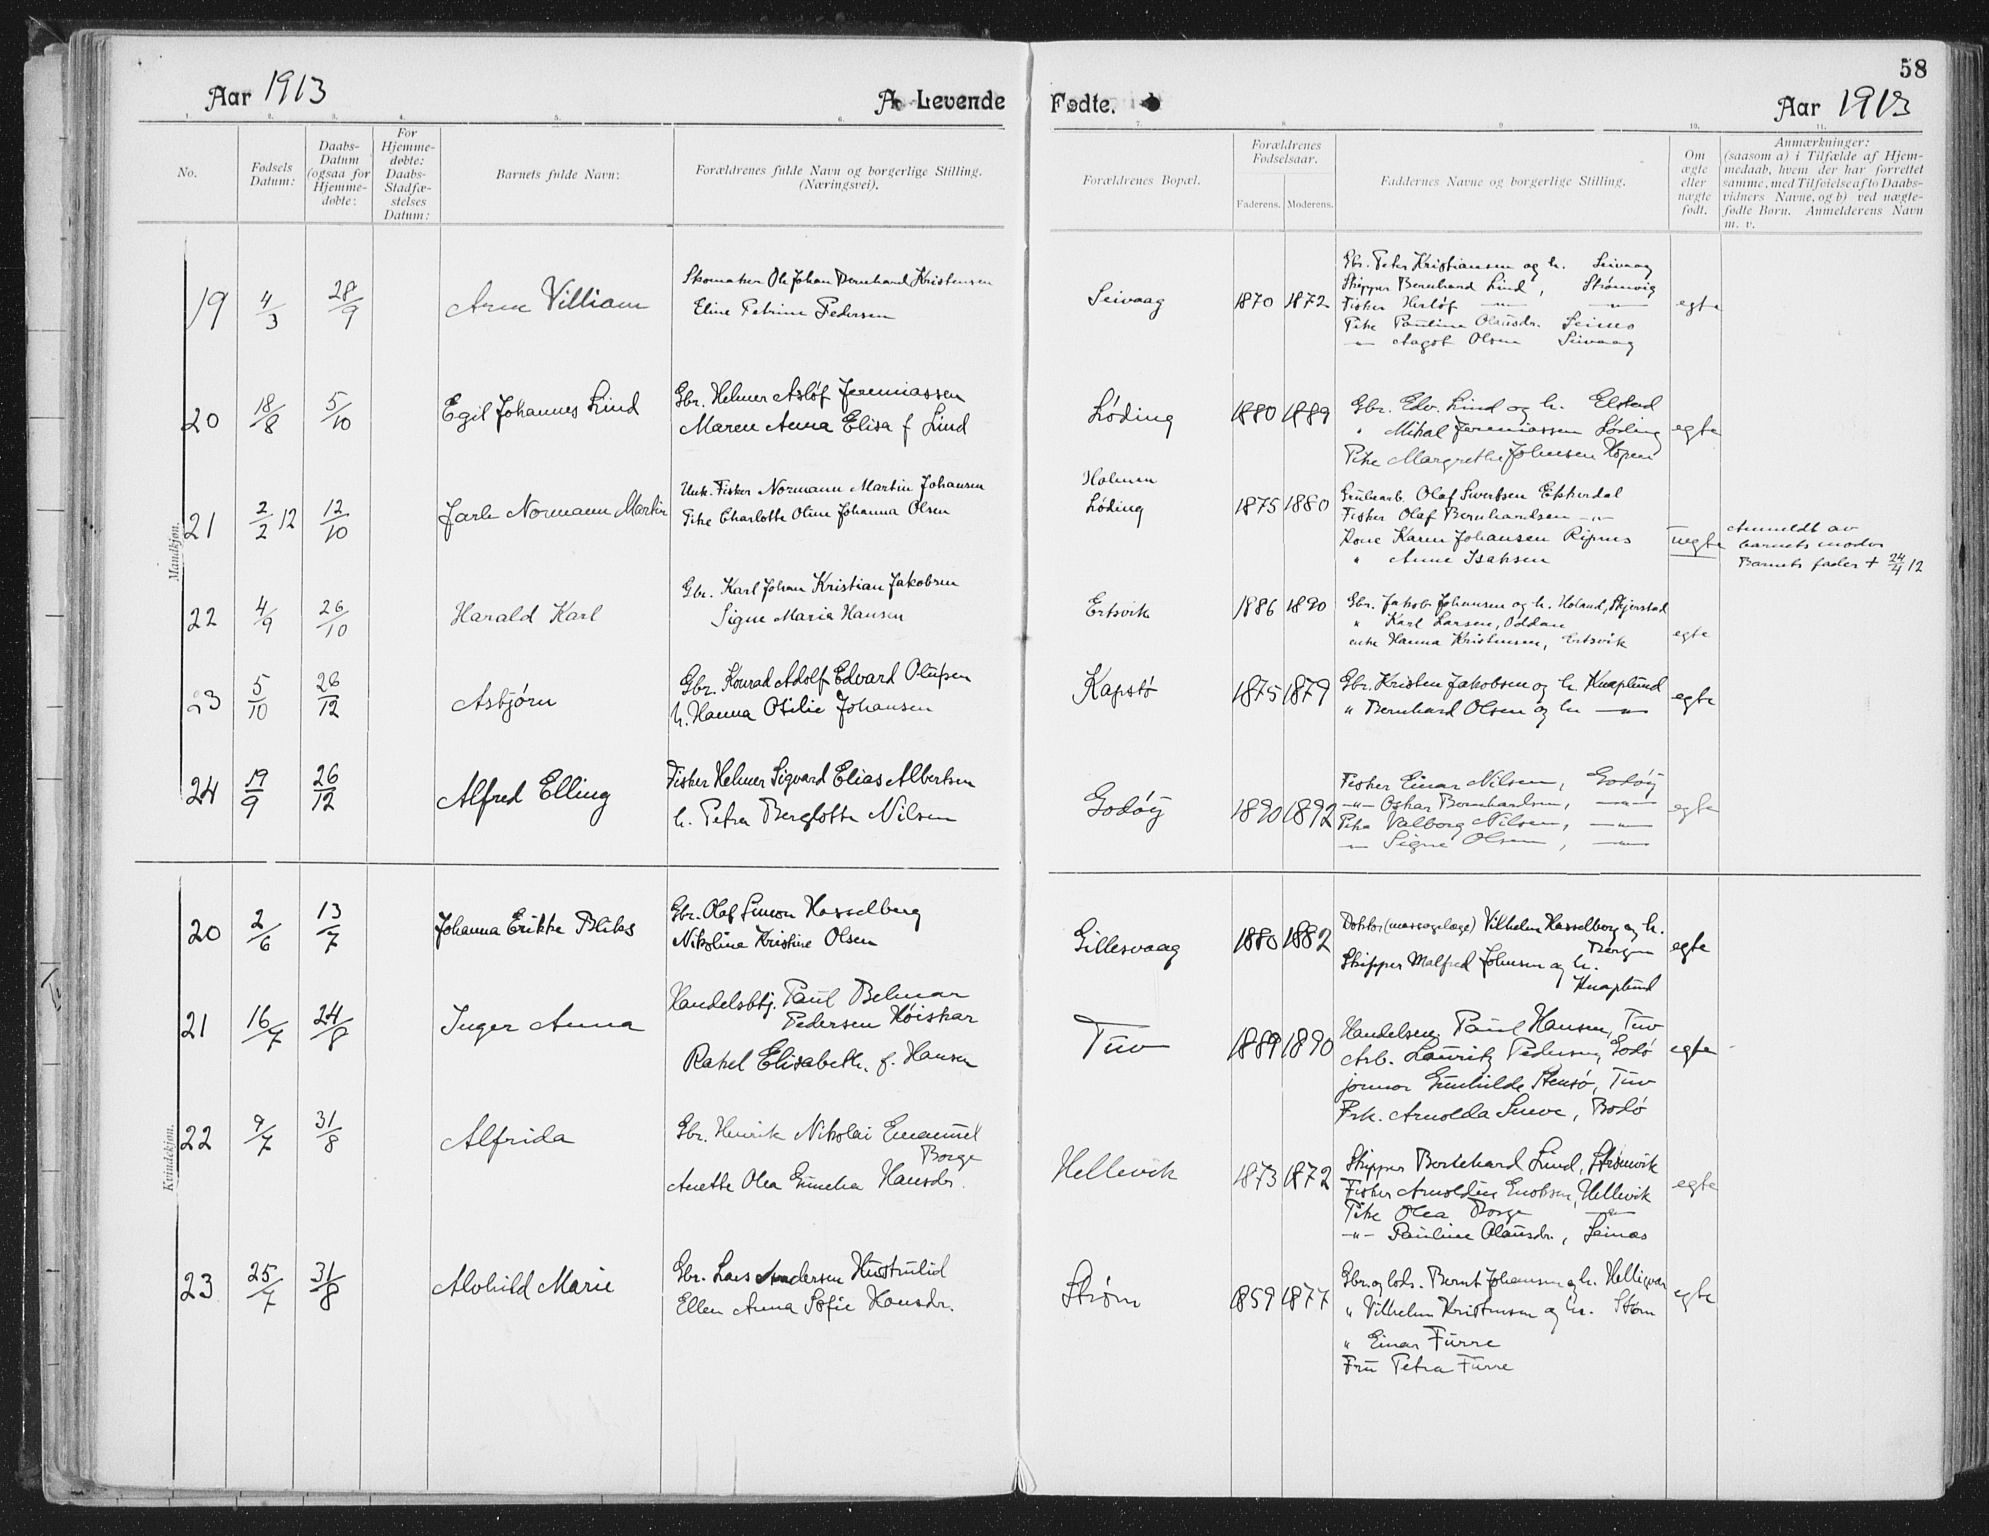 58
Aar 1913
A. Levende Fødte.
Aar 1913
1. 2. 3. 4. 5. 6. 7. 8. 9. 10. 11.
No.
Fødsels Datum:
Daabs-Datum (ogsaa for Hjemme-døbte:
For Hjemme-døbte: Daabs-Stadfæ-stelses Datum:
Barnets fulde Navn:
Forældrenes fulde Navn og borgerlige Stilling. (Næringsvei).
Forældrenes Bopæl.
Forældrenes Fødselsaar.
Faderens. Moderens.
Faddernes Navne og borgerlige Stilling.
Om ægte eller uægte født.
Anmærkninger:
(saasom a) i Tilfælde af Hjem-
medaab, hvem der har forrettet
samme, med Tilføielse af to Daabs-
vidners Navne, og b) ved uægte-
fødte Børn. Anmelderens Navn
m. v.
Mandkjøn.
19 4/3 28/9 Arne Villiam
Skomaker Ole Johan Bernhard Kristensen
Eline Petrine Pedersen
Seivaag 1870 1872
Gbr. Peter Kristiansen og h. Seivaag
Skipper Bernhard Lind, Strømvig
Fisker Herløf — " — — " —
Pike Pauline Olausdr. Seines
— " — Aagot Olsen Seivaag
egte
20 18/8 5/10 Egil Johannes Lind
Gbr. Helmer Asløf Jeremiassen
Maren Anna Elisa f Lind
Løding 1880 1889
Gbr. Edv. Lind og h. Elstad
" Mikal Jeremiassen Løding
Pike Margrethe Johnsen Hopen
egte
21 2/2 12 12/10 Jarle Normann Martin
Unk. Fisker Normann Martin Johansen
Pike Charlotte Oline Johanna Olsen
Holmen
Løding 1875 1880
Grubearb. Olaf Sivertsen
Fisker Olaf Bernhardsen — " —
Kone Karen Johansen Ripnes
" Anne Isaksen
uegte
Anmeldt av
barnets moder
Barnets fader + 24/4 12
22 4/9 26/10 Harald Karl
Gbr. Karl Johan Kristian Jakobsen
Signe Maria Hansen
Ertsvik 1886 1890
Gbr. Jakob Johansen og h. Holand, Skjerstad
" Karl Larsen, Oddan
enke Hanna Kristensen, Ertsvik
egte
23 5/10 26/12 Asbjørn
Gbr. Konrad Adolf Edvard Olufsen
h. Hanna Otilie Johansen
Kapstø 1875 1879
Gbr. Kristen Jakobsen og h. Knaplund
" Bernhard Olsen og h. — " —
egte
24 19/9 26/12 Alfred Elling
Fisker Helmer Sigvard Elias Albertsen
h. Petra Berglotte Nilsen
Godøy 1890 1892
Fisker Einar Nilsen, Godøy
— " — Oskar Bernhardsen, — " —
Pike Valborg Nilsen, — " —
— " — Signe Olsen, — " —
egte
Kvindekjøn.
20 2/6 13/7 Johanna Erikke Bliks
Gbr. Olaf Simon Hasselberg
Nikoline Kristine Olsen
Gillesvaag 1880 1882
Doktor (massagelæge) Vilhelm Hasselborg og h.
Bergen
Skipper Malfred Johnsen og h.
Knaplund
egte
21 16/7 24/8 Inger Anna
Handelsbtj. Paul Belmar
Pedersen Høiskar
Rakel Elisabeth. f. Hansen
Tuv 1889 1890
Handelsmg Paul Hansen, Tuv
Arb. Lauritz Pedersen, Godø
jomor Gunhilde Stensø, Tuv
Frk. Arnolda Sneve, Bodø
egte
22 9/7 31/8 Alfrida
Gbr. Henrik Nikolai Emanuel
Borge
Anette Olea Hansdr.
Hellevik 1873 1872
Skipper Bernhard Lind, Strømvik
Fisker Arnoldus Enoksen, Hellevik
Pike Olea Borge — " —
— " — Pauline Olausdr., Seines
egte
23 25/7 31/8 Alvhild Marie
Gbr. Lars Andersen Hustrulid
Ellen Anna Sofie Hansdr.
Strøm 1859 1877
Gbr. og lods. Bernt Johansen og h. Helligvær
" Vilhelm Kristensen og h. Strøm
" Einar Furre
Fru Petra Furre
egte